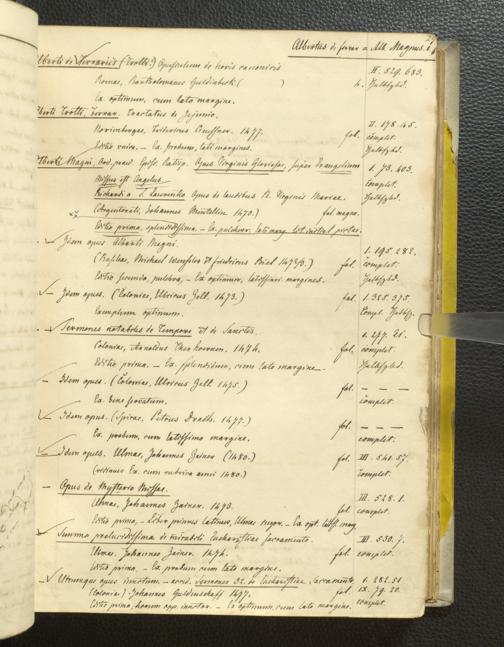 Albertus de ferrar = Alb. Magnus.
Alberti de Ferrariis (Trotti.) Opusculum de horis canonicis
Romae, Bartholomaeus Guldinbeck ( ) 4. IV. 529. 683.
Ex. optimum, cum lato margine. Halbfzbd.
Alberti Trotti, Ferrar. tractatus de Jejunio. II. 178. 45.
Norimbergae, Fridericus Creussner. 1477. fol. complet.
Editio unica. — Ex. probum, lati margines. Halbfzbd.
Alberti Magni, Ord. praed. Episc. Ratisp. Opus Virginis Gloriosae, super Evangelium 1. 73. 403.
Missus est Angelus. complet.
Richardi a S. Laurentio Opus de laudibus B. Virginis Mariae. Halbfzbd.
(Argentorati, Johannes Mentelin. 1473.) fol. magno.
Editio prima, splendidissima. — Ex. pulcherr. lat. marg.
Idem opus Alberti Magni. 1. 195. 282.
Michael Wenssler et Fridericus Biel fol. complet.
Editio secunda, pulchra, — Ex. optimum, latissimi margines. Halbfzbd.
Idem opus. (Coloniae, Ulricus Zell. 1473.) fol. 1. 325. 375.
Exemplum optimum. Compl. Halbfz.
Sermones notabiles de Tempore et de Sanctis. 1. 277. 21.
Coloniae, Arnoldus Therhoernen. 1474. fol. complet.
Editio prima. — Ex. splendidum, cum lato margine. Halbfzbd.
Idem opus. (Coloniae, Ulricus Zell 1475.) fol. — — —
Ex. bene servatum. complet.
Idem opus. (Spirae, Petrus Drach. 1477.) — — —
Ex. probum, cum latissimo margine. fol. complet.
Idem opus. Ulmae, Johannes Zainer (1480.) fol. III. 541. 57.
Ex. cum rubrica anni 1480.) complet.
Opus de Mysterio Missae. III. 528. 1.
Ulmae, Johannes Zainer. 1473. fol. complet.
Editio prima, — Liber primus latinus, Ulmae impr. — Ex. opt. latiss. marg.
Summa praelucidissima de mirabili Eucharistiae Sacramento. III. 530. 7.
Ulmae, Johannes Zainer. 1474. fol. complet.
Editio prima. — Ex. probum cum lato margine.
Utrumque opus iunctum. — accid. Sermones 32. de Eucharistiae Sacramento 1. 282. 51.
(Coloniae) Johannes Guldenschaff 1477. fol. IX. 79. 20.
Editio prima, horum opp. iunctor. — Ex. optimum, cum lato margine. complet.